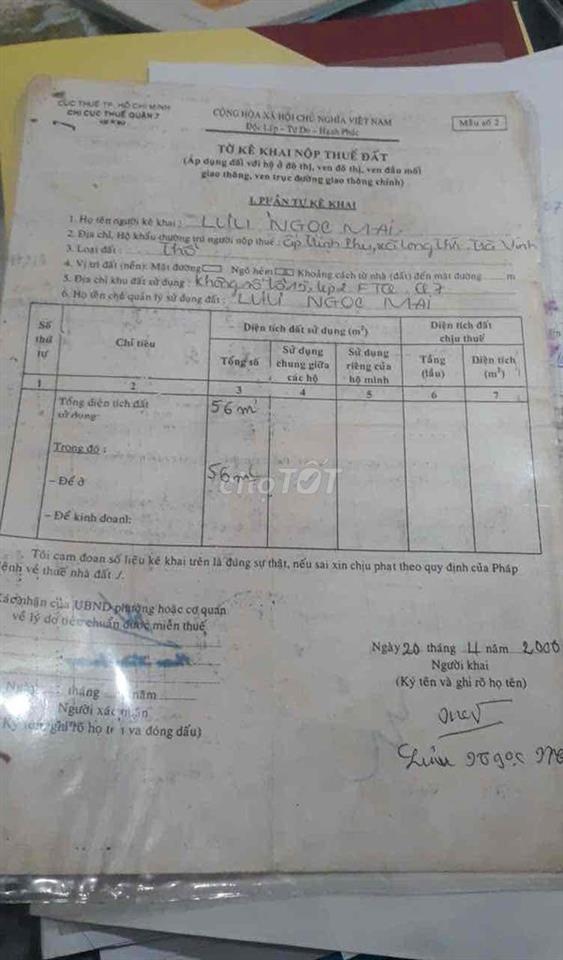 CỤC THUẾ TP. HỒ CHÍ MINH
CHI CỤC THUẾ QUẬN 7
CỘNG HÒA XÃ HỘI CHỦ NGHĨA VIỆT NAM
Độc Lập - Tự Do - Hạnh Phúc
Mẫu số 2
TỜ KÊ KHAI NỘP THUẾ ĐẤT
(Áp dụng đối với hộ ở đô thị, ven đô thị, ven đầu mối
giao thông, ven trục đường giao thông chính)
I. PHẦN TỰ KÊ KHAI
1. Họ tên người kê khai : LƯU NGỌC MAI
2. Địa chỉ, Hộ khẩu thường trú người nộp thuế : ấp Vĩnh Phú, xã Long Trà Vinh
3. Loại đất : Thổ
4. Vị trí đất (nền): Mặt đường Ngõ hẻm Khoảng cách từ nhà (đất) đến mặt đường m
5. Địa chỉ khu đất sử dụng : Không số lô 15, Q7
6. Họ tên chế quản lý sử dụng đất : LƯU NGỌC MAI
Số thứ tự
Chỉ tiêu
Diện tích đất sử dụng (m²)
Diện tích đất chịu thuế
Tổng số
Sử dụng chung giữa các hộ
Sử dụng riêng của hộ mình
Tầng (lầu)
Diện tích (m²)
1 2 3 4 5 6 7
Tổng diện tích đất sử dụng 56 m²
Trong đó :
– Để ở 56 m²
– Để kinh doanh:
chợTỐT
Tôi cam đoan số liệu kê khai trên là đúng sự thật, nếu sai xin chịu phạt theo quy định của Pháp
lệnh về thuế nhà đất ./.
Xác nhận của UBND phường hoặc cơ quan
về lý do tiêu chuẩn được miễn thuế
Ngày tháng năm
Người xác nhận
(Ký tên ghi rõ họ tên và đóng dấu)
Ngày 20 tháng 4 năm 2006
Người khai
(Ký tên và ghi rõ họ tên)
Lưu Ngọc